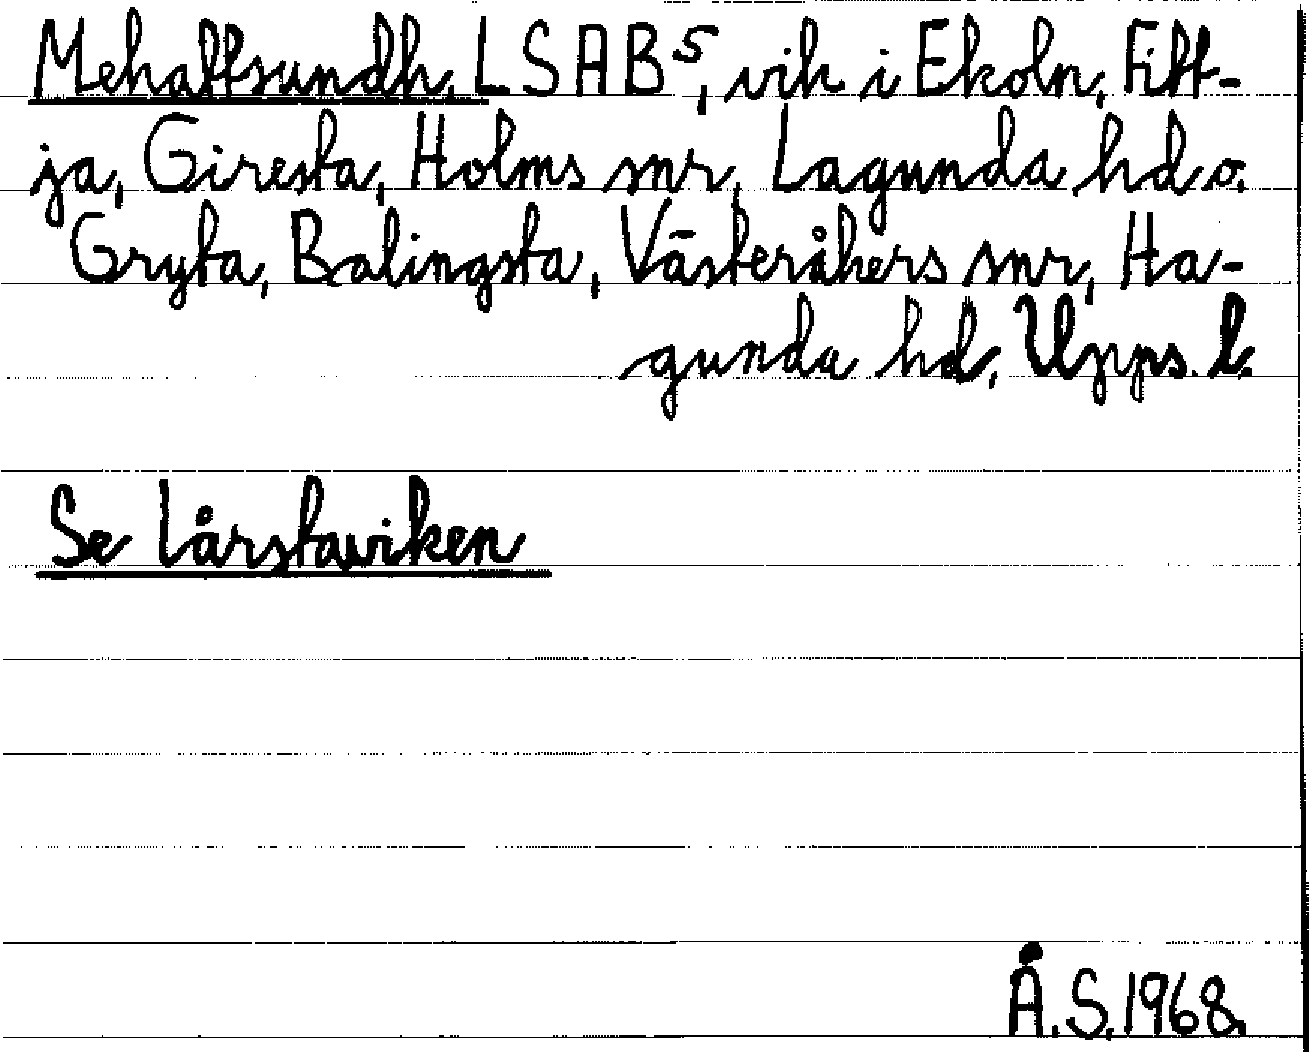 L S A B⁵, vik i Ekoln, Fitt-
ja, Giresta, Holms snr, Lagunda hd o.
Gryta, Balingsta, Västeråkers snr, Ha-
gunda hd, Upps. l.
Se Lårstaviken
Å. S. 1968.